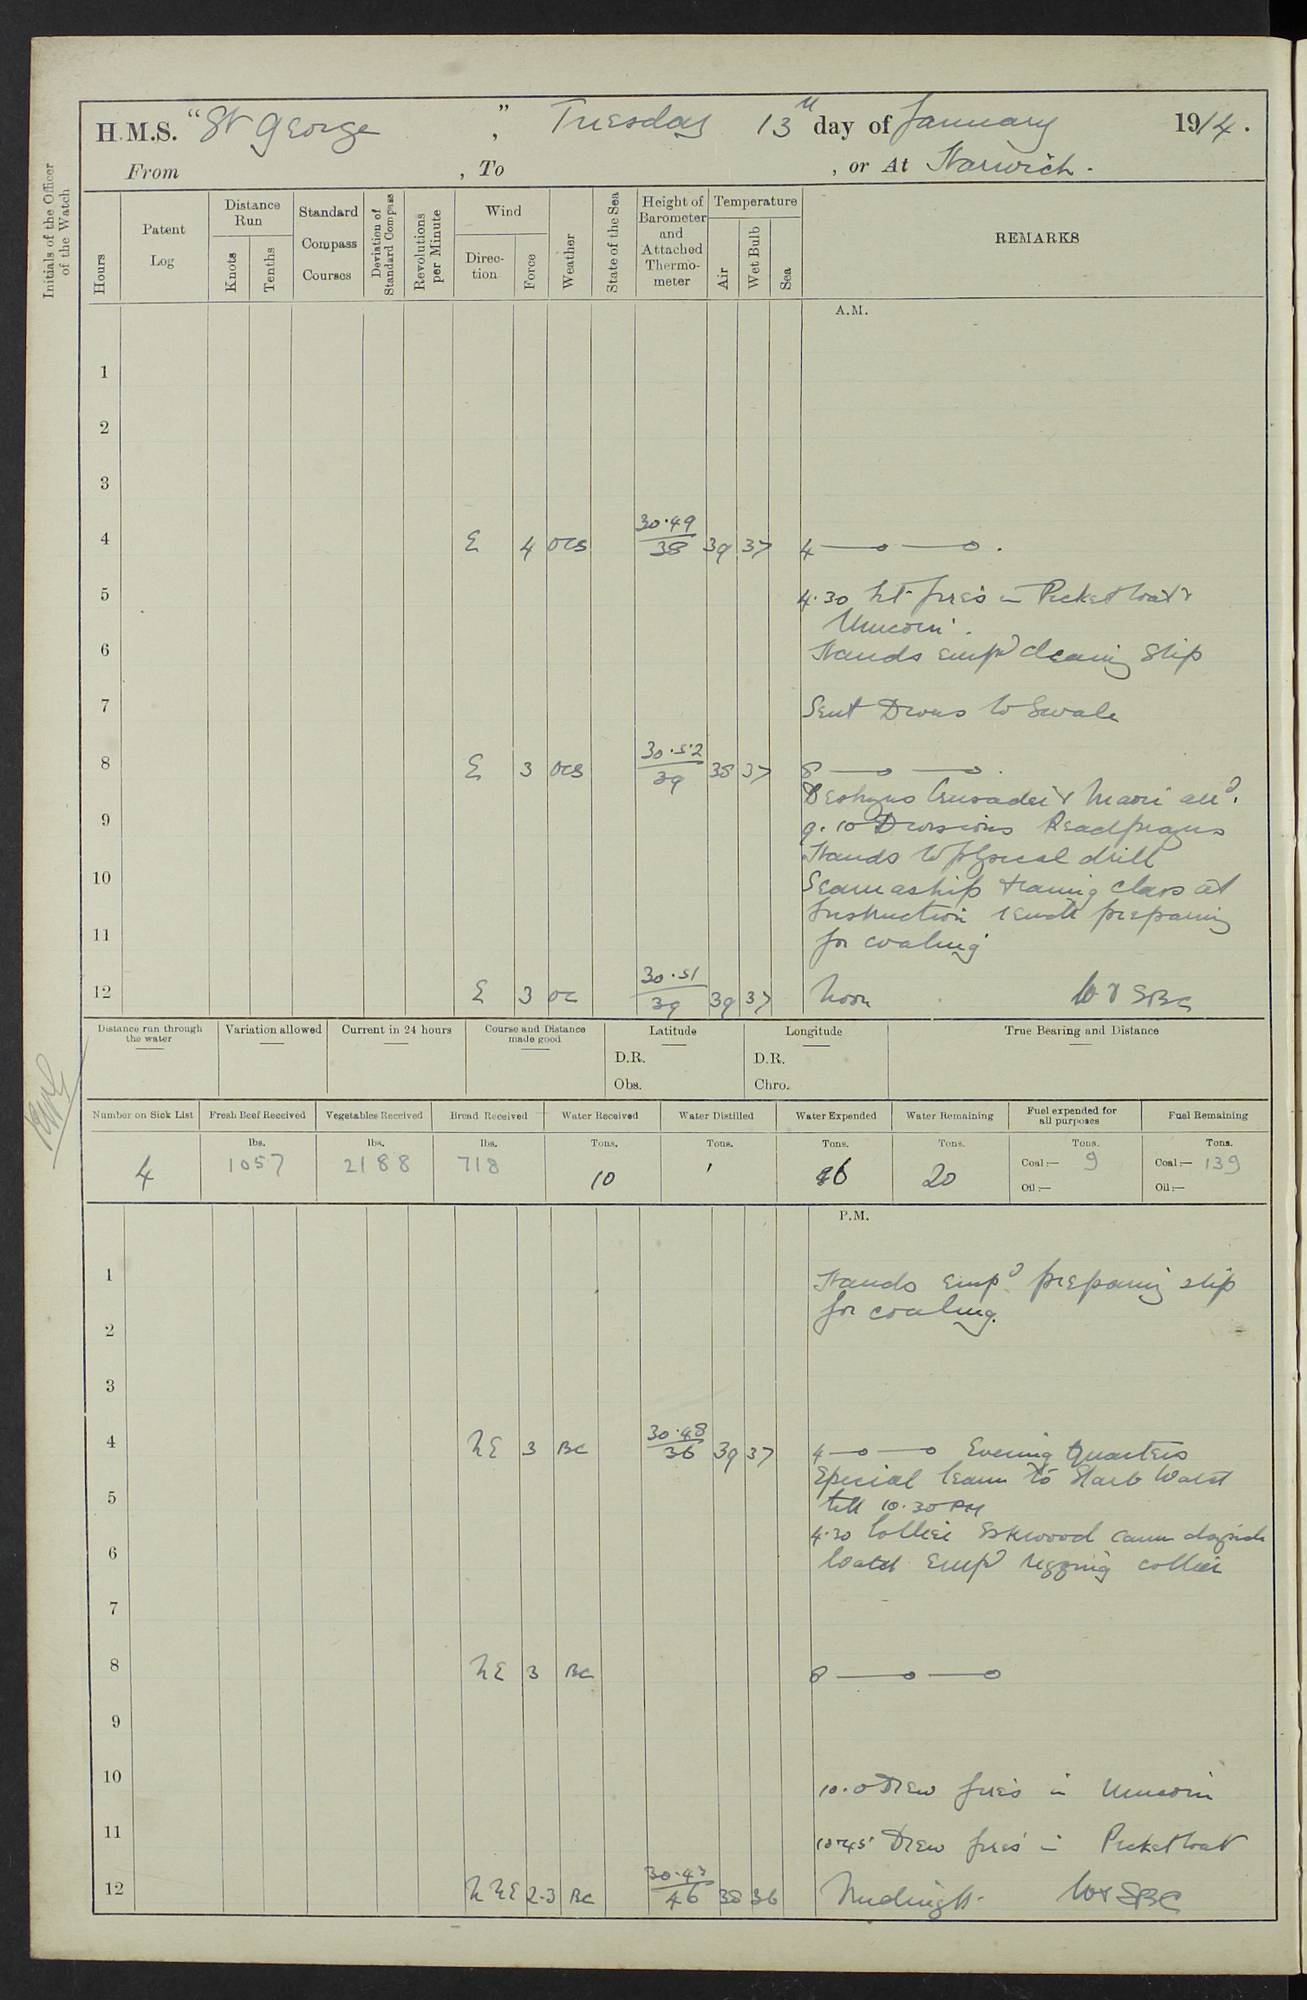 H.M.S. "St George", Tuesday 13th day of January 1914.
From , To , or At Harwich.
Initials of the Officer of the Watch
Hours
Patent Log
Distance Run
Knots
Tenths
Standard Compass Courses
Deviation of Standard Compass
Revolutions per Minute
Wind
Direction
Force
Weather
State of the Sea
Height of Barometer and Attached Thermometer
Temperature
Air
Wet Bulb
Sea
REMARKS
A.M.
1
2
3
4 E 4 ocs 30.49 38 39 37 4
5 4.30 Lit fires in Picket boat &
Unicorn.
6 Hands emp'd cleaning ship
7 Sent Divers to Swale
8 E 3 ocs 30.52 39 38 37 8
Destroyers Crusader & Maori arrd.
9 9.10 Divisions Read prayers
Hands to physical drill
10 Seamanship training class at
Instruction preparing
11 for coaling
12 E 3 oc 30.51 39 39 37 Noon
Distance run through the water
Variation allowed
Current in 24 hours
Course and Distance made good
Latitude
D.R.
Obs.
Longitude
D.R.
Chro.
True Bearing and Distance
Number on Sick List
Fresh Beef Received
Vegetables Received
Bread Received
Water Received
Water Distilled
Water Expended
Water Remaining
Fuel expended for all purposes
Fuel Remaining
4
lbs. 1057
lbs. 2188
lbs. 718
Tons. 10
Tons.
Tons. 6
Tons. 20
Tons. Coal:— 9 Oil:—
Tons. Coal:— 139 Oil:—
P.M.
1 Hands emp'd preparing ship
for coaling.
2
3
4 NE 3 BC 30.48 36 39 37 4 Evening Quarters
Special leave to Starb Watch
5 till 10.30 PM
4.30 Collier Eskwood came alongside
6 Watch emp'd rigging collier
7
8 NE 3 BC 8
9
10 10.0 Drew fires in Unicorn
11 10.45 Drew fires in Picket boat
12 NNE 2.3 BC 30.43 46 38 36 Midnight